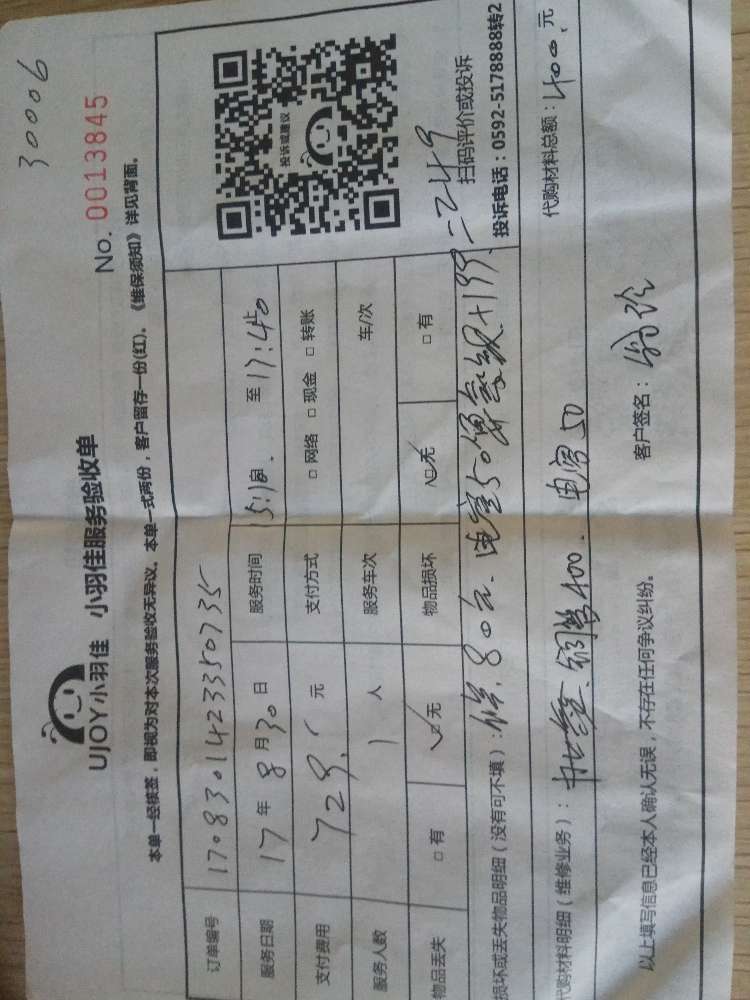 30006
UJOY小羽佳 小羽佳服务验收单
No. 0013845
本单一经核签，即视为对本次服务验收无异议。本单一式两份，客户留存一份(红)。《维保须知》详见背面。
订单编号 1708301423350735
服务日期 17年8月30日 服务时间 至 17:40
支付费用 729. 元 支付方式 □ 网络 □ 现金 □ 转账
服务人数 1 人 服务车次 车/次
物品丢失 □ 有 ☑ 无 物品损坏 ☑ 无 □ 有
投诉或建议
扫码评价或投诉
投诉电话：0592-5178888转2
损坏或丢失物品明细（没有可不填）： 80元. 电容50 +199. =249
代购材料明细（维修业务）： 铜管400. 电容50 代购材料总额：400. 元
以上填写信息已经本人确认无误，不存在任何争议纠纷。 客户签名：